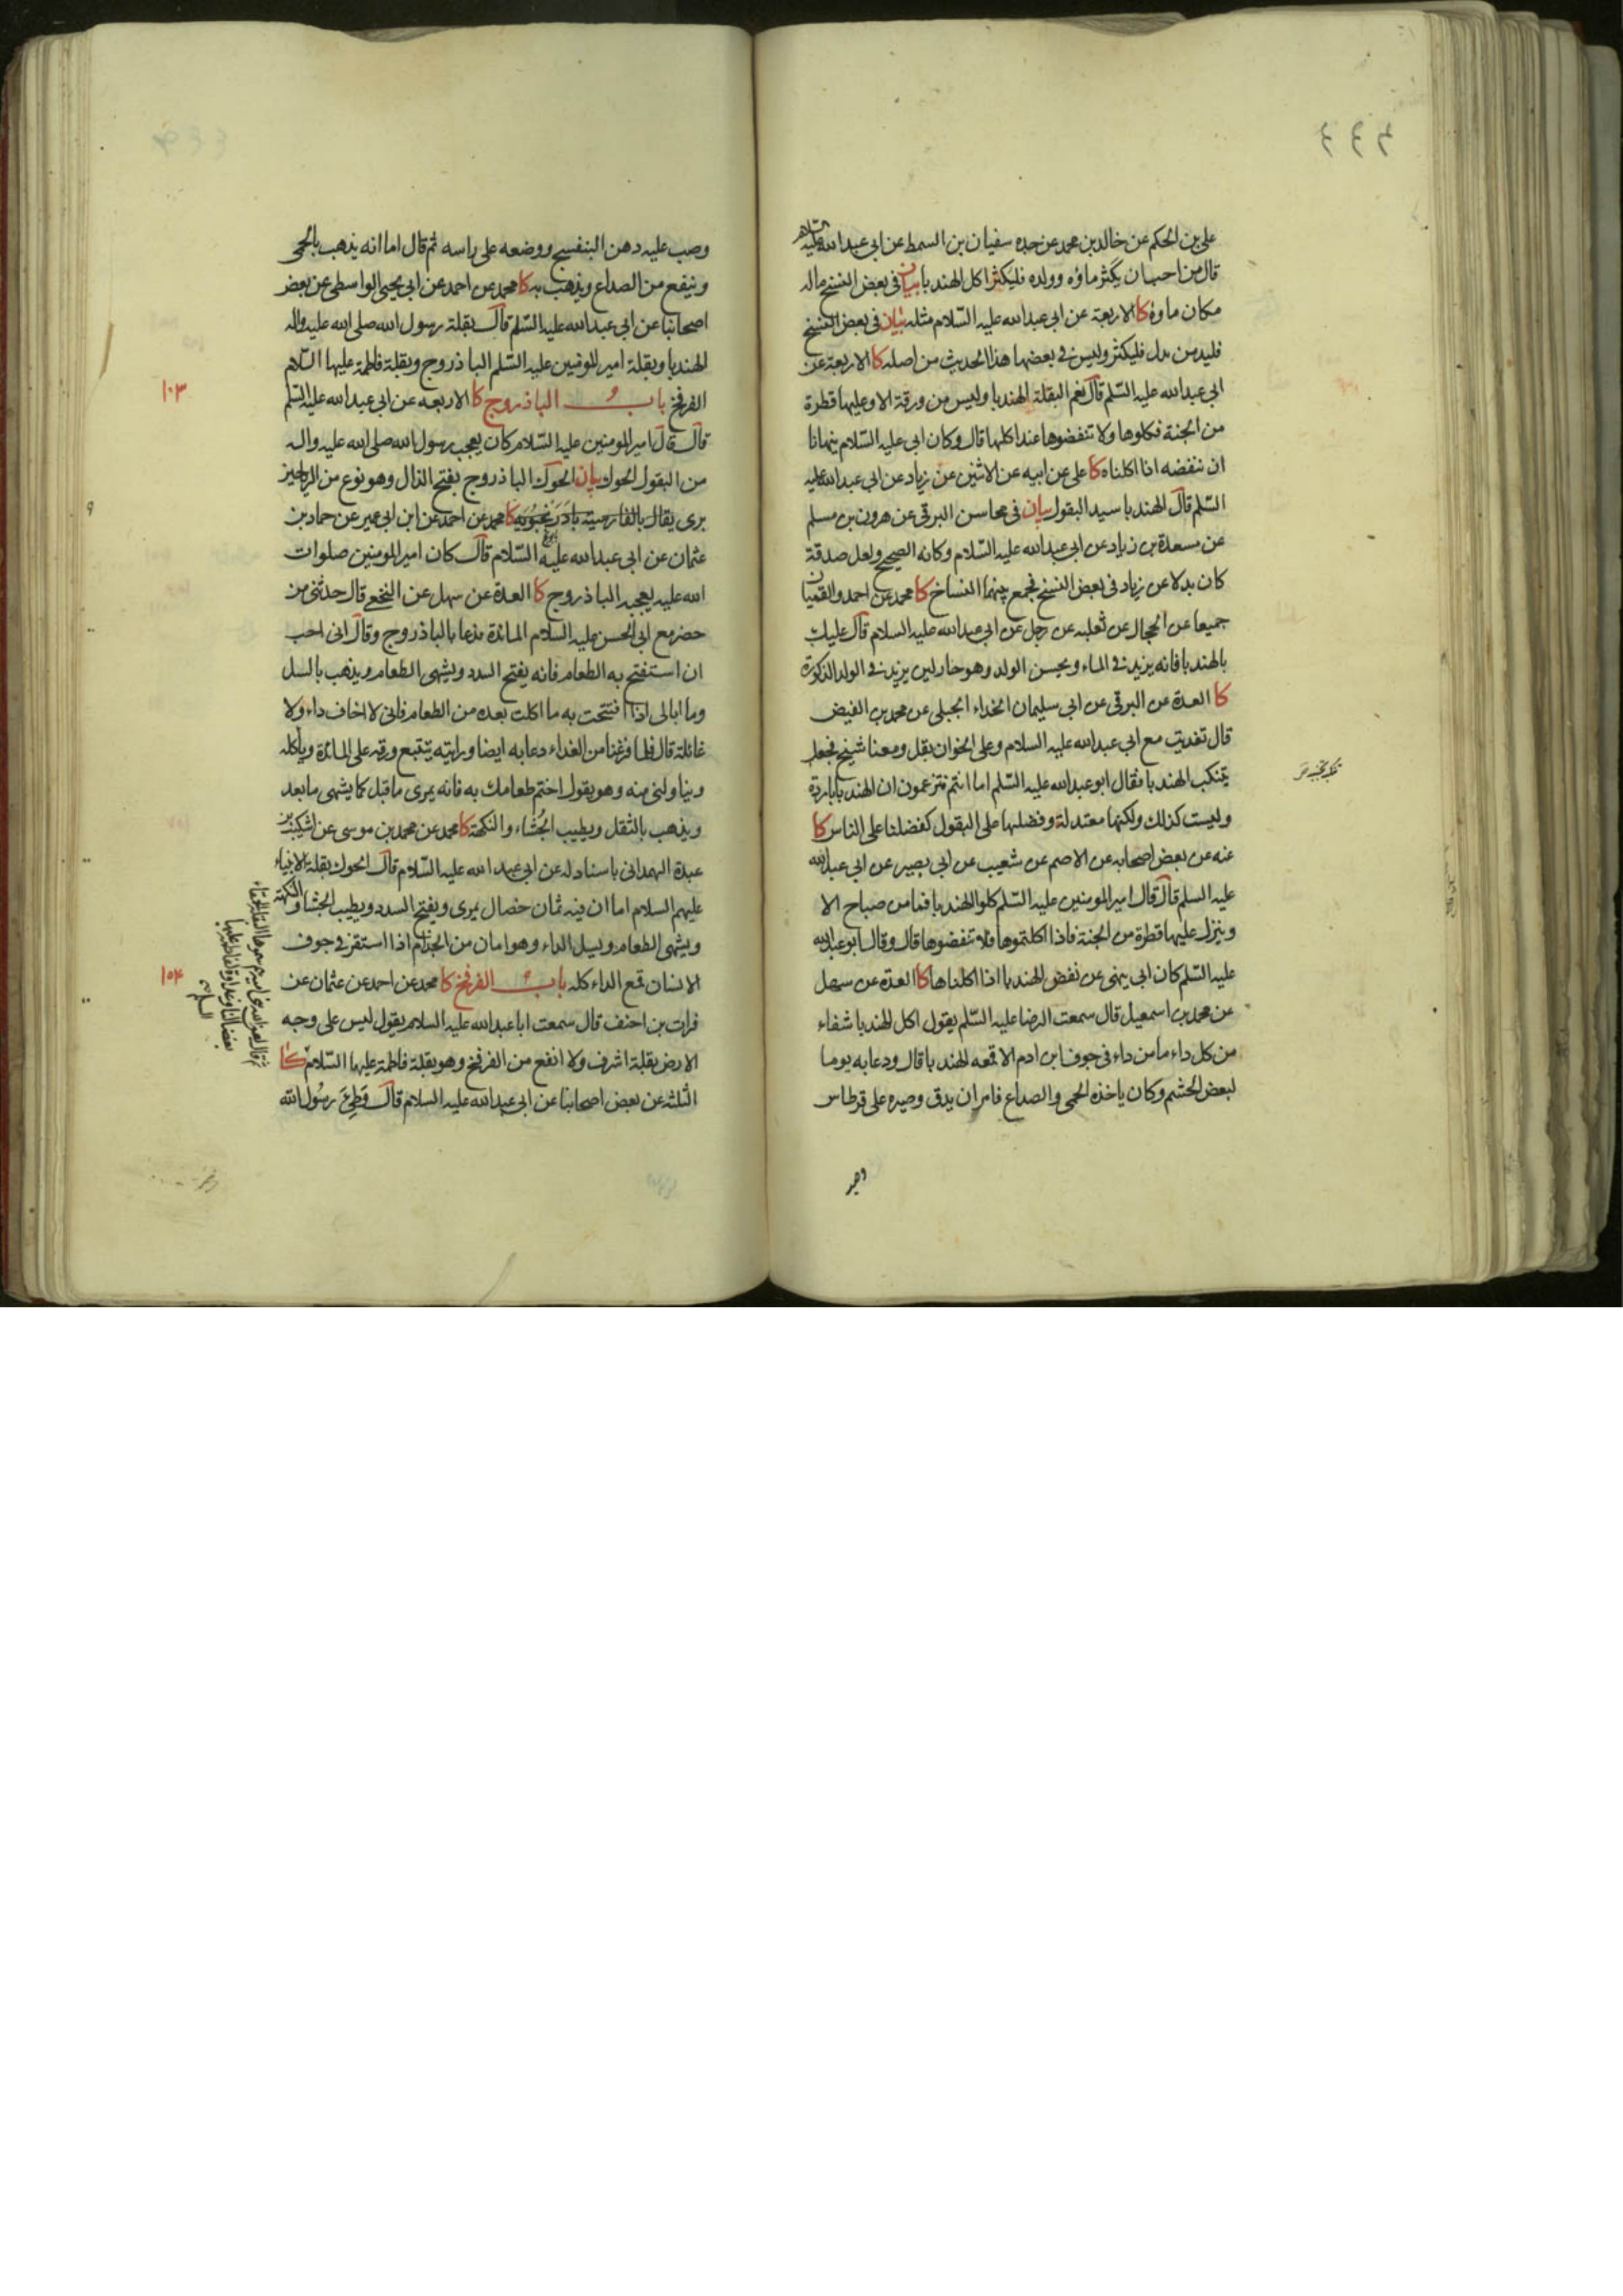 ٤٤٤
على بن الحكم عن خالد بن محمد عن جده سفيان بن السمط عن ابي عبدالله عليه السلام
قال من احب ان يكثر ماؤه وولده فليكثر اكل الهندبا بيان في بعض النسخ ماله
مكان ماؤه كا الاربعة عن ابي عبدالله عليه السلام مثله بيان في بعض النسخ
فليدمن بدل فليكثر وليس في بعضها هذا الحديث من اصله كا الاربعة عن
ابي عبدالله عليه السلم قال نعم البقلة الهندبا وليس من ورقة الا وعليها قطرة
من الجنة فكلوها ولا تنفضوها عند اكلها قال وكان ابي عليه السلام ينهانا
ان ننفضه اذا اكلناه كا على عن ابيه عن الاثنين عن زياد عن ابي عبدالله عليه
السلم قال الهندبا سيد البقول بيان في محاسن البرقى عن هرون بن مسلم
عن مسعدة بن زياد عن ابي عبدالله عليه السلام وكانه الصحيح ولعل صدقة
كان بدلا عن زياد في بعض النسخ فجمع بينهما النساخ كا محمد عن احمد والقميان
جميعا عن الحجال عن ثعلبه عن رجل عن ابي عبدالله عليه السلام قال عليك
بالهندبا فانه يزيد في الماء ويحسن الولد وهو حار لين يزيد في الولد الذكورة
كا العدة عن البرقي عن ابي سليمان الحذاء الجبلى عن محمد بن الفيض
قال تغديت مع ابي عبدالله عليه السلام وعلى الخوان بقل ومعنا شيخ فجعل
يتنكب الهندبا فقال ابو عبدالله عليه السلم اما انتم فتزعمون ان الهندبا باردة
وليست كذلك ولكنها معتدلة وفضلها على البقول كفضلنا على الناس كا
عنه عن بعض اصحابه عن الاصم عن شعيب عن ابي بصير عن ابي عبدالله
عليه السلم قال قال امير المومنين عليه السلم كلوا الهندبا فما من صباح الا
وينزل عليها قطرة من الجنة فاذا اكلتموها فلا تنفضوها قال وقال ابو عبدالله
عليه السلم كان ابي ينهى عن نفض الهندبا اذا اكلناها كا العدة عن سهل
عن محمد بن اسمعيل قال سمعت الرضا عليه السلم يقول اكل الهندبا شفاء
من كل داء ما من داء في جوف ابن ادم الا قمعه الهندبا قال ودعا به يوما
لبعض الحشم وكان ياخذه الحمى والصداع فامر ان يدق وصيره على قرطاس
وصب عليه دهن البنفسج ووضعه على راسه ثم قال اما انه يذهب بالحمى
وينفع من الصداع ويذهب به كا محمد عن احمد عن ابي يحيى الواسطي عن بعض
اصحابنا عن ابي عبدالله عليه السلم قال بقلة رسول الله صلى الله عليه واله
الهندبا وبقلة امير المومنين عليه السلم الباذروج وبقلة فاطمة عليها السلام
الفرفخ باب الباذروج كا الاربعه عن ابي عبدالله عليه السلم
١٠٣
قال قال امير المومنين عليه السلام كان يعجب رسول الله صلى الله عليه واله
من البقول الحوك بيان الحوك الباذروج بفتح الذال وهو نوع من الرياحين
برى يقال بالفارسية بادرنجبويه كا محمد عن احمد عن ابن ابي عمير عن حماد بن
عثمان عن ابي عبدالله عليه السلام قال كان امير المومنين صلوات
الله عليه يعجبه الباذروج كا العدة عن سهل عن النخعي قال حدثني من
حضر مع ابي الحسن عليه السلام المائدة فدعا بالباذروج وقال اني احب
ان استفتح به الطعام فانه يفتح السدد ويشهي الطعام ويذهب بالسل
وما ابالى اذا افتتحت به ما اكلت بعده من الطعام فاني لا اخاف داء ولا
غائلة قال فلما فرغنا من الغداء دعا به ايضا ورايته يتتبع ورقه على المائدة وياكله
ويناولني منه وهو يقول اختم طعامك به فانه يمرى ما قبل كما يشهى ما بعد
ويذهب بالثقل ويطيب الجشاء والنكهة كا محمد عن محمد بن موسى عن اشكيب بن
عبدة الهمداني باسناد له عن ابي عبدالله عليه السلام قال الحوك بقلة الانبياء
عليهم السلام اما ان فيه ثمان خصال يمرى ويفتح السدد ويطيب الجشا والنكهة
ويشهى الطعام ويسل الداء وهو امان من الجذام اذا استقر في جوف
الانسان قمع الداء كله باب الفرفخ كا محمد عن احمد عن عثمان عن
١٠٤
فرات بن احنف قال سمعت ابا عبدالله عليه السلام يقول ليس على وجه
الارض بقلة اشرف ولا انفع من الفرفخ وهو بقلة فاطمة عليها السلام كا
الثلثه عن بعض اصحابنا عن ابي عبدالله عليه السلام قال وطئ رسول الله
ثم قال لعن الله بني امية هم سموها البقلة الحمقاء
بغضا لنا وعداوة لفاطمة عليها
السلام